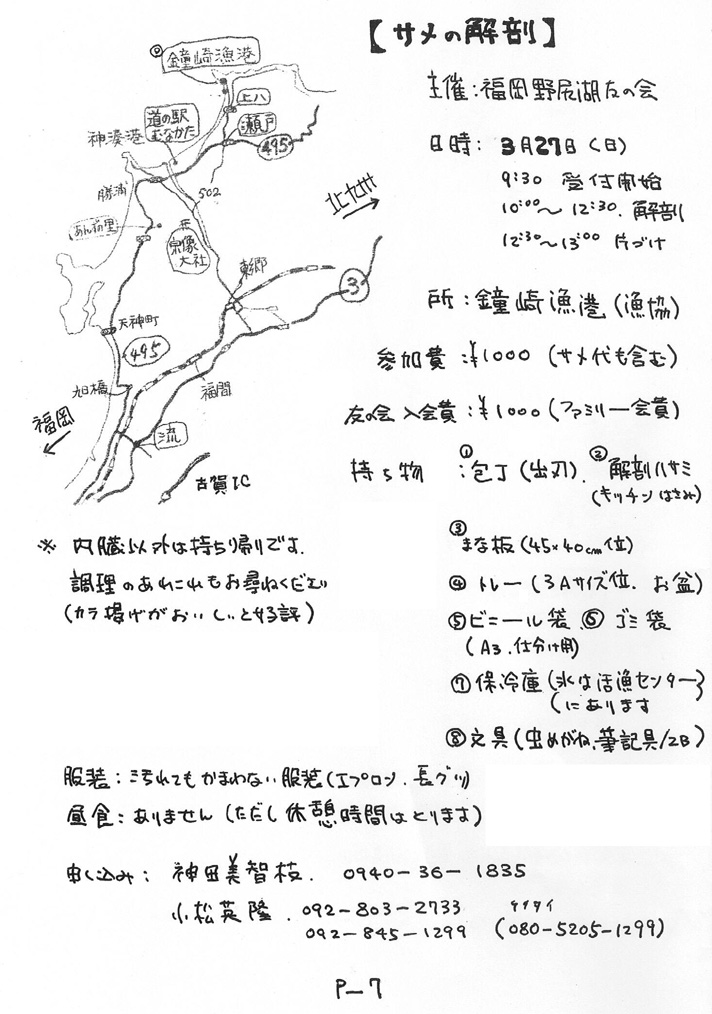 【サメの解剖】
主催：福岡野尻湖友の会
日時： 3月27日（日）
9:30 受付開始
10:00～12:30. 解剖
12:30～13:00 片づけ
所：鐘崎漁港（漁協）
参加費：¥1000（サメ代も含む）
友の会 入会費：¥1000（ファミリー会費）
持ち物 ：①包丁（出刃）. ②解剖ハサミ
（キッチンはさみ）
③まな板（45×40cm位）
④トレー（3Aサイズ位. お盆）
⑤ビニール袋 ⑥ゴミ袋
（A3. 仕分け用）
⑦保冷庫（氷は活漁センター
にあります）
⑧文具（虫めがね、筆記具/2B）
⓪鐘崎漁港
上八
道の駅
むなかた
神湊港
瀬戸
495
勝浦
502
北九州
あんずの里
宗像
大社
東郷
3
天神町
495
旭橋
福間
福岡
流
古賀I.C
※ 内臓以外は持ち帰りです.
調理のあれこれもお尋ねください
（カラ揚げがおいしいとの好評）
服装：汚れてもかまわない服装（エプロン. 長グツ）
昼食：ありません（ただし休憩時間はとります）
申し込み： 神田美智枝. 0940-36-1835
小松英隆. 092-803-2733 ケイタイ
092-845-1299 （080-5205-1299）
P_7